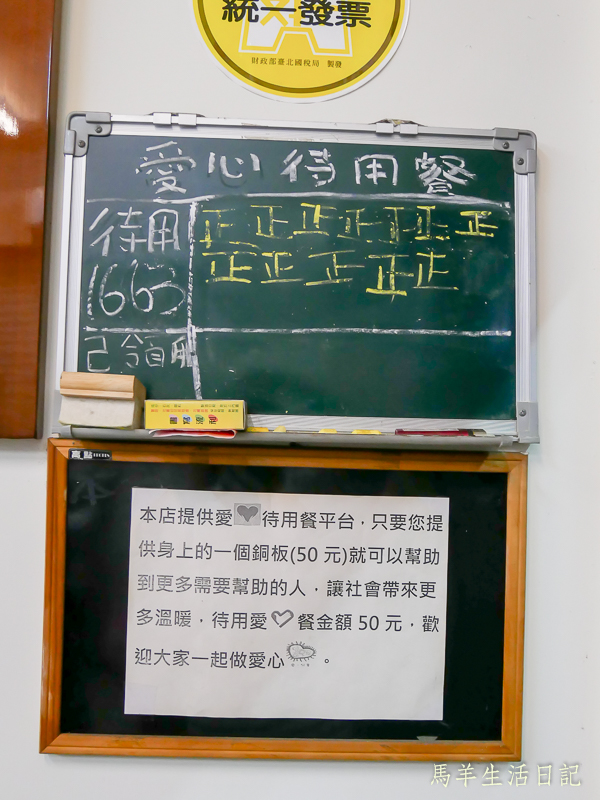 統一發票
財政部臺北國稅局 製發
愛心待用餐
待用 正正正正正正正
1663 正正正正正
已領用
本店提供愛❤待用餐平台，只要您提
供身上的一個銅板(50 元)就可以幫助
到更多需要幫助的人，讓社會帶來更
多溫暖，待用愛♡餐金額 50 元，歡
迎大家一起做愛心。
馬羊生活日記